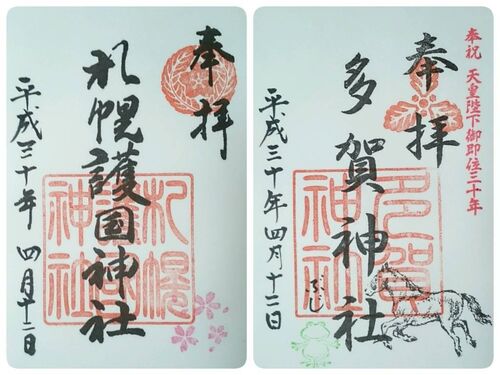 奉拝
札幌護国神社
平成三十年 四月十二日
札幌
護国
神社
奉祝 天皇陛下御即位三十年
奉拝
多賀神社
平成三十年四月十二日
多賀
神社